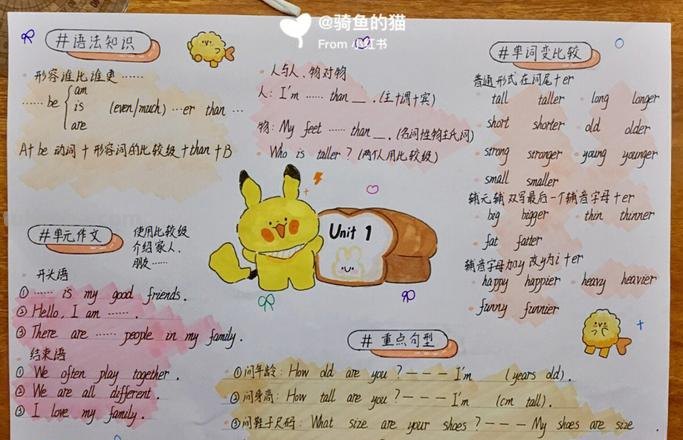 @骑鱼的猫
From 小红书
#语法知识
形容谁比谁更……
am
……be is (even/much) …er than …
are
A+be 动词+形容词的比较级+than+B
人与人、物对物
人: I'm …… than __ .(主+谓+宾)
物: My feet …… than __ .(名词性物主代词)
Who is taller?(两个人用比较级)
#单词变比较
普通形式在词尾+er
tall taller long longer
short shorter old older
strong stronger young younger
small smaller
辅元辅 双写最后一个辅音字母+er
big bigger thin thinner
fat fatter
辅音字母加y 改y为i+er
happy happier heavy heavier
funny funnier
#单元作文
使用比较级
介绍家人、
朋友……
开头语
① …… is my good friends.
② Hello, I am …….
③ There are …… people in my family.
结束语
① We often play together.
② We are all different.
③ I love my family.
Unit 1
#重点句型
①问年龄: How old are you?——— I'm (years old).
②问身高: How tall are you?——— I'm (cm tall).
③问鞋子尺码: What size are your shoes?——— My shoes are size